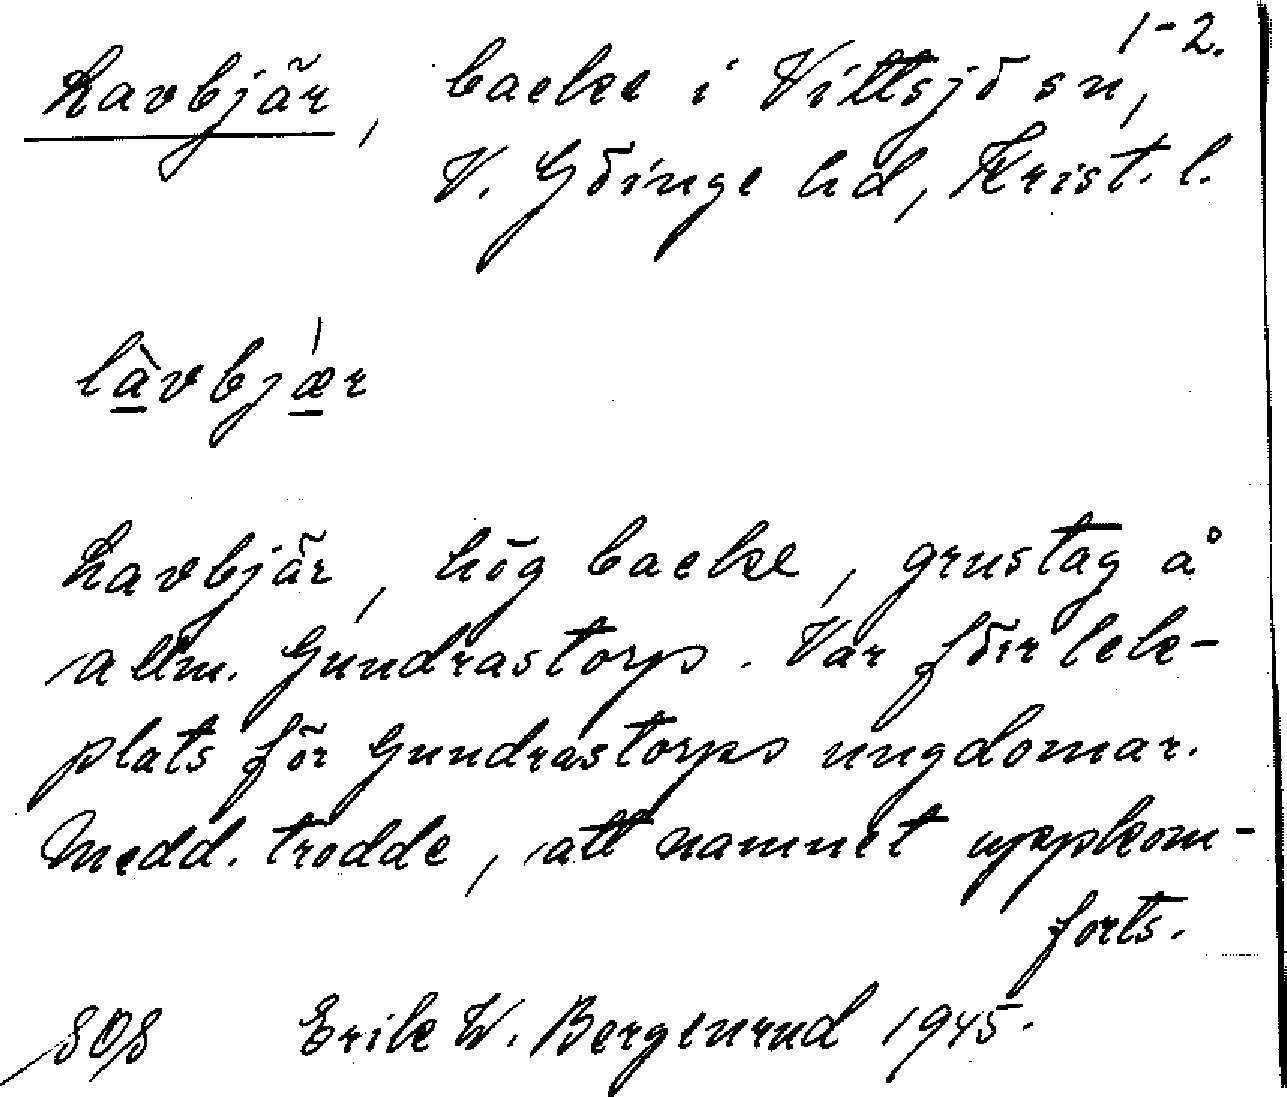 1-2.
Lavbjär, backe i Vittsjö sn,
V. Göinge hd, Krist. l.
làvbjær
Lavbjär, hög backe, grustag å
allm. Gundrastorp. Var förr lek-
plats för Gundrastorps ungdomar.
Medd. trodde, att namnet uppkom-
forts.
808 Erik W. Bergenrud 1945.